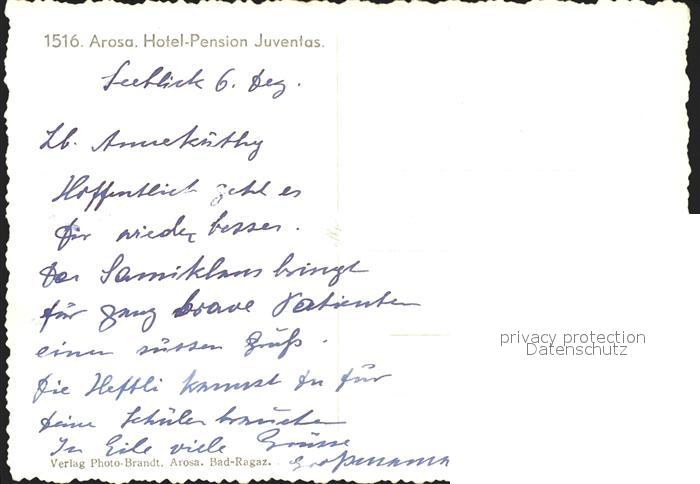 1516. Arosa. Hotel-Pension Juventas.
Seeblick 6. Dez.
Lb. Annekäthy
Hoffentlich geht es
Dir wieder besser.
Der Samiklaus bringt
für ganz brave Patienten
einen süssen Gruß.
Die Heftli kannst du für
deine Schüler brauchen
In Eile viele Grüsse
Großmama
Verlag Photo-Brandt, Arosa, Bad-Ragaz.
privacy protection
Datenschutz